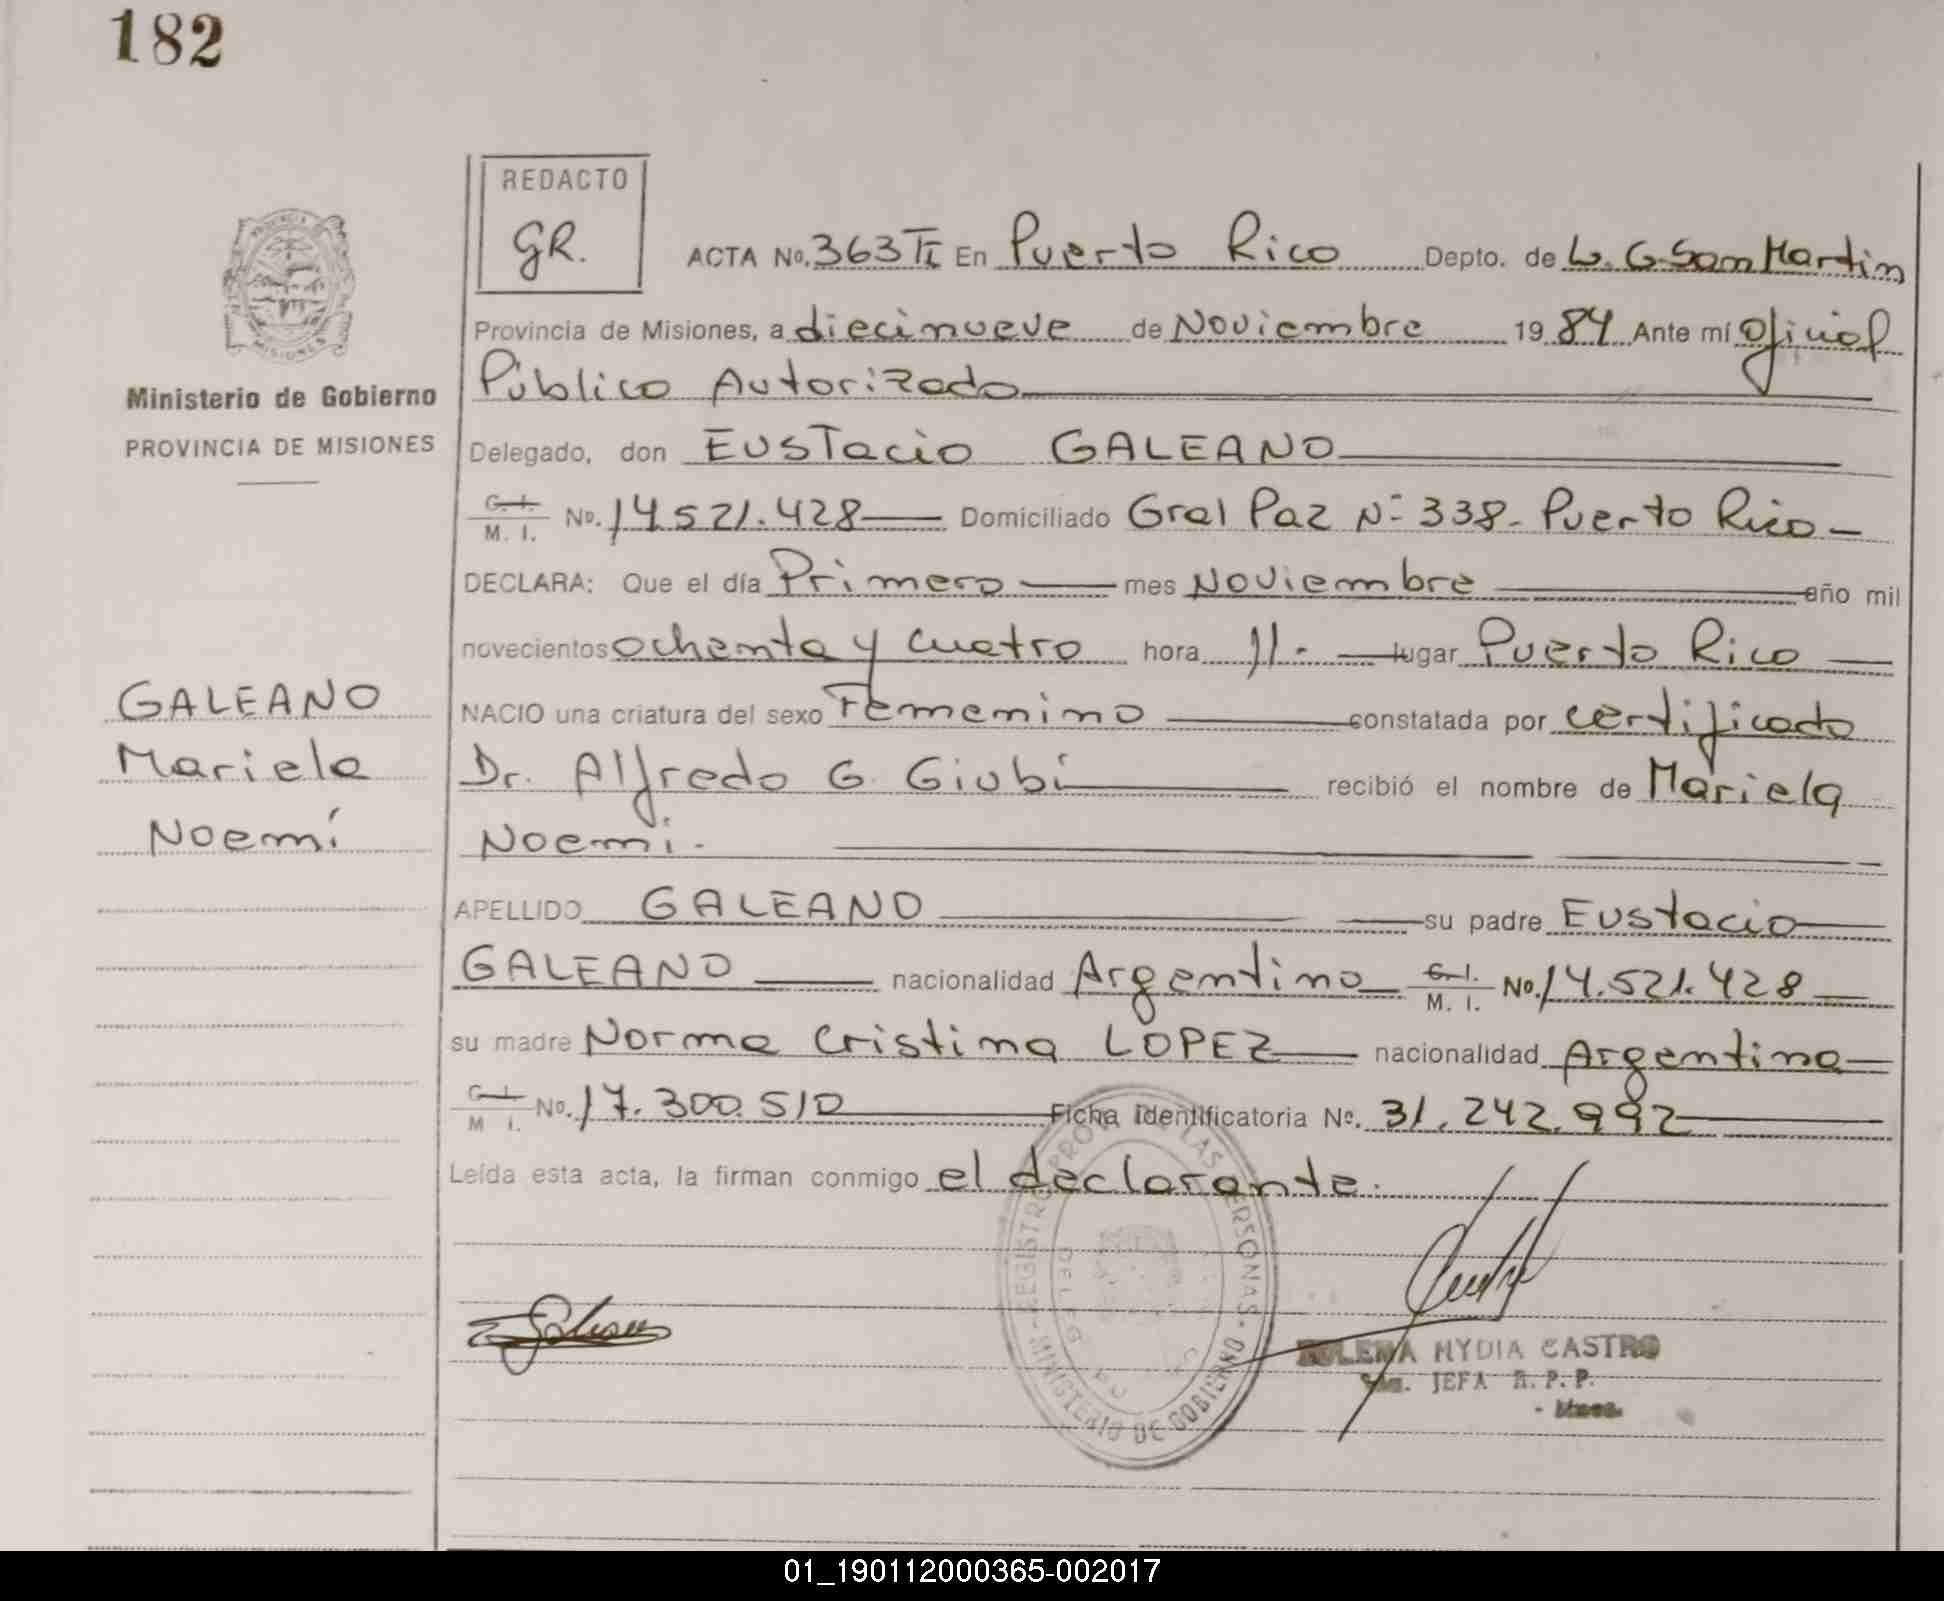 182
REDACTO
GR.
PROVINCIA DE
MISIONES
Ministerio de Gobierno
PROVINCIA DE MISIONES
GALEANO
Mariela
Noemí
ACTA No. 363 TI En Puerto Rico Depto. de L. G. San Martin
Provincia de Misiones, a diecinueve de Noviembre 1984 Ante mí Oficial
Público Autorizado
Delegado, don EUSTacio GALEANO
C. I. / M. I. No. 14.521.428 Domiciliado Gral Paz Nº 338 - Puerto Rico -
DECLARA: Que el día Primero mes Noviembre año mil
novecientos ochenta y cuatro hora 11.- lugar Puerto Rico
NACIO una criatura del sexo Femenino constatada por certificado
Dr. Alfredo G. Giubí recibió el nombre de Mariela
Noemi.
APELLIDO GALEANO su padre Eustacio
GALEANO nacionalidad Argentino C. I. / M. I. No. 14.521.428
su madre Norma Cristina LOPEZ nacionalidad Argentina
C. I. / M I. No. 17.300.510 Ficha identificatoria No. 31.242.992
Leída esta acta, la firman conmigo el declarante.
REGISTRO PROV. LAS PERSONAS - MINISTERIO DE GOBIERNO
NYDIA CASTRO
JEFA R. P. P.
01_190112000365-002017